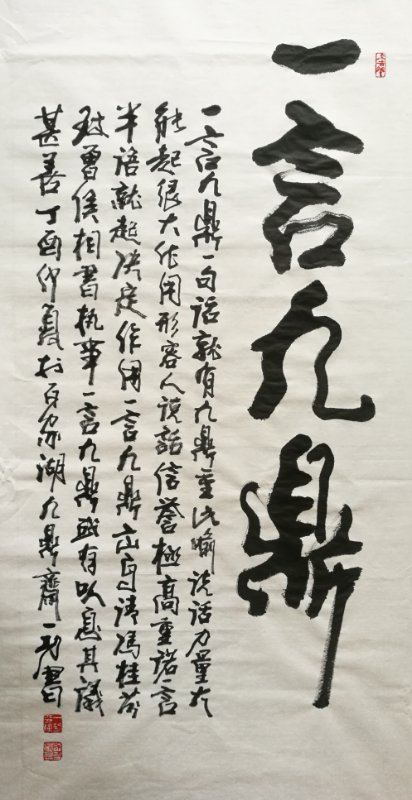 一言九鼎
一言九鼎一句话就有九鼎重比喻说话力量大
能起很大作用形容人说話信誉極高重诺言
半语就起决定作用一言九鼎出自清馮桂芬
致曾侯相書执事一言九鼎或有以息其議
甚善丁酉仲夏於百家湖九鼎齋一書